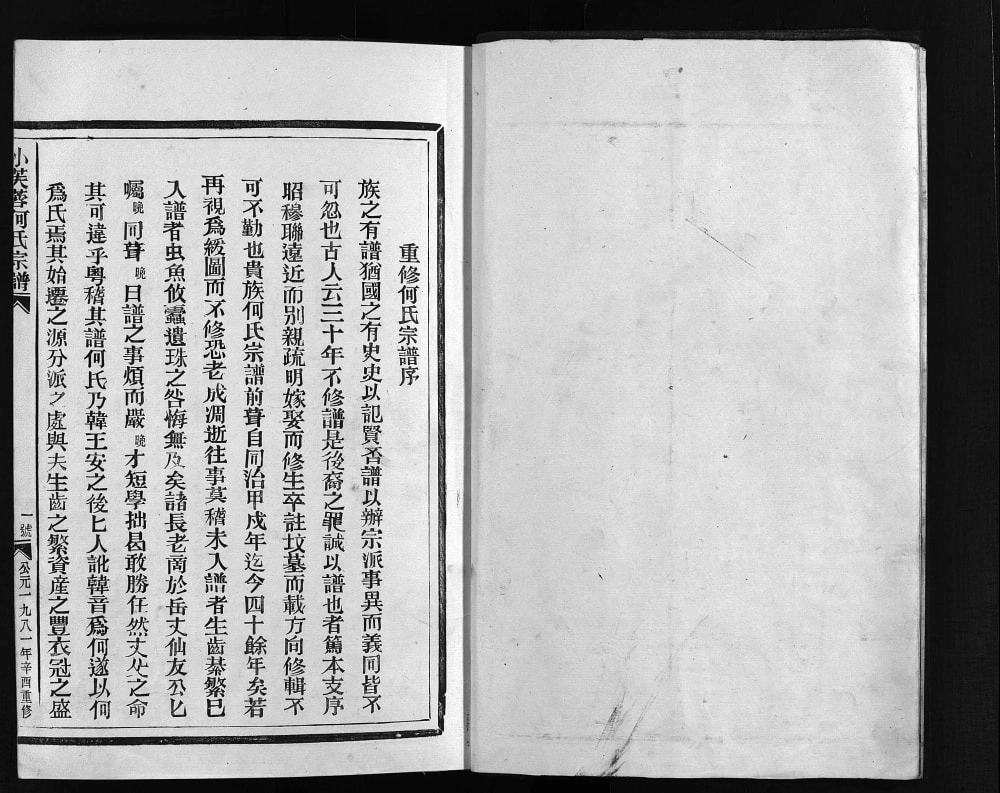 重修何氏宗譜序
族之有譜猶國之有史史以記賢否譜以辦宗派事異而義同皆不
可忽也古人云三十年不修譜是後裔之罪誠以譜也者篤本支序
昭穆聯遠近而別親疏明嫁娶而修生卒註坟墓而載方向修輯不
可不勤也貴族何氏宗譜前葺自同治甲戍年迄今四十餘年矣若
再視爲緩圖而不修恐老成凋逝往事莫稽未入譜者生齒綦繁已
入譜者虫魚攸蠹遺珠之咎悔無及矣諸長老啇於岳丈仙友公匕
囑晚同葺晚曰譜之事煩而嚴晚才短學拙曷敢勝任然丈父之命
其可違乎粤稽其譜何氏乃韓王安之後匕人訛韓音爲何遂以何
爲氏焉其始遷之源分派之處與夫生齒之繁資産之豐衣冠之盛
小芙蓉何氏宗譜
一號
公元一九八一年辛酉重修